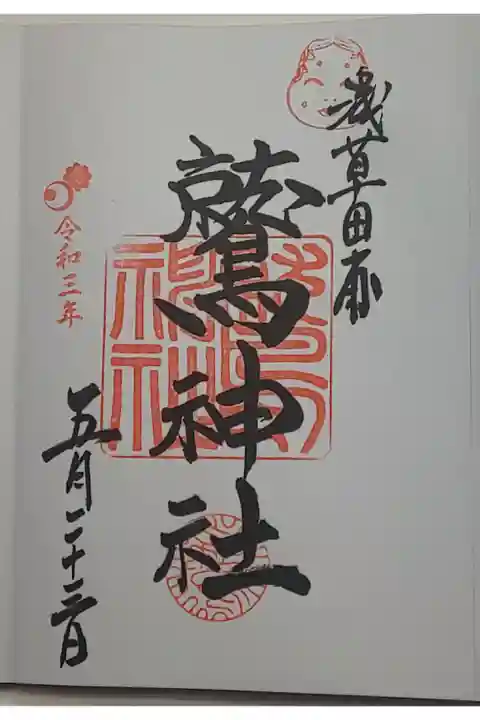 浅草田甫
鷲神社
令和三年
五月二十三日